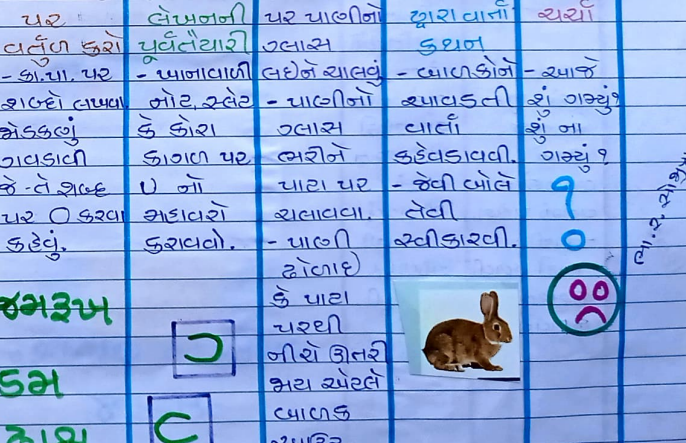 પર
વર્તુળ કરો
- કા.પા. પર
શબ્દો લખવા
જોડકણું
ગવડાવી
જે-તે શબ્દ
પર O કરવા
કહેવું.
જમરૂખ
લેખનની
પૂર્વતૈયારી
- ખાનાવાળી
નોટ, સ્લેટ
કે કોરા
કાગળ પર
U નો
મહાવરો
કરાવવો.
પર પાણીનો
ગ્લાસ
લઈને ચાલવું
- પાણીનો
ગ્લાસ
ભરીને
પાટા પર
ચલાવવા.
- પાણી
ઢોળાઈ
કે પાટા
પરથી
નીચે ઊતરી
જાય એટલે
બાળક
દ્વારા વાર્તા
કથન
- બાળકોને
આવડતી
વાર્તા
કહેવડાવવી.
- જેવી બોલે
તેવી
સ્વીકારવી.
ચર્ચા
- આજે
શું ગમ્યું?
શું ના
ગમ્યું?